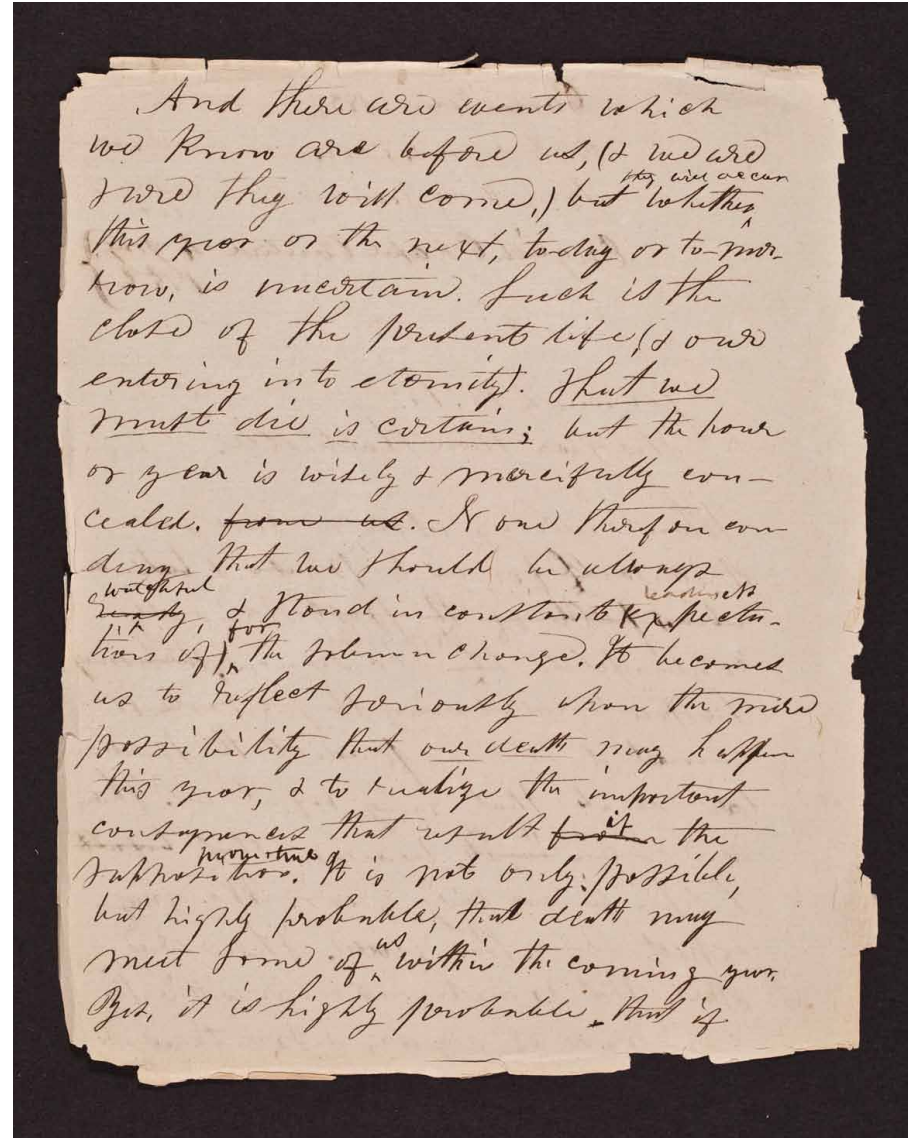 And there are events which
we know are before us, (& we are
they will occur
sure they will come,) but whether
this year or the next, to-day or to-mor-
row, is uncertain. Such is the
close of the present life (& our
entering into eternity). That we
must die is certain; but the hour
or year is wisely & mercifully con-
cealed. from us. None therefore can
deny that we should be always
watchful
ready, & stand in constant expecta-
readiness
tion of) for the solemn change. It becomes
us to reflect seriously upon the mere
possibility that our death may happen
this year, & to realize the important
consequences that result from if the
supposition. It is not only possible,
but highly probable, that death may
meet some of us within the coming year.
Yes, it is highly probable, that if